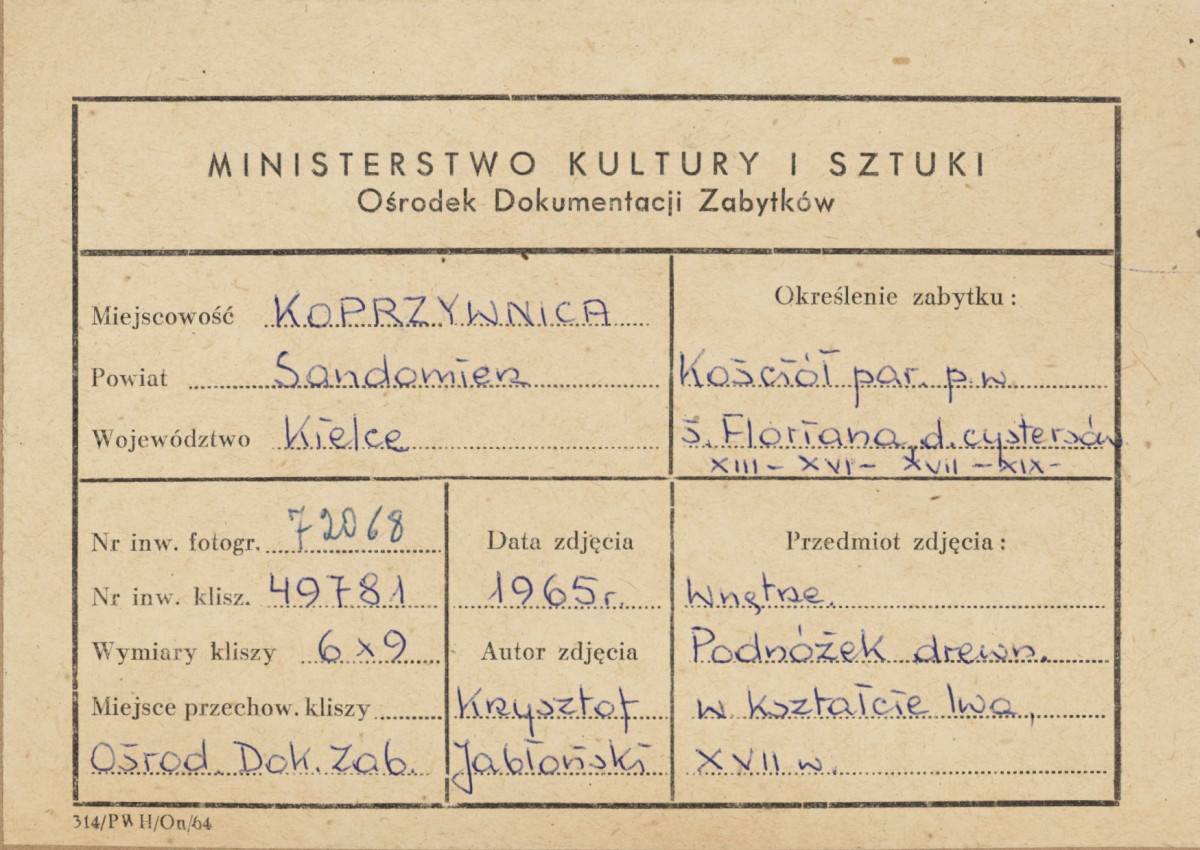 MINISTERSTWO KULTURY I SZTUKI
Ośrodek Dokumentacji Zabytków
Miejscowość KOPRZYWNICA
Powiat Sandomierz
Województwo Kielce
Określenie zabytku:
Kościół par. p.w.
ś. Floriana, d. cystersów
XIII - XVI - XVII - XIX -
Nr inw. fotogr. 72068
Nr inw. klisz. 49781
Wymiary kliszy 6 x 9
Miejsce przechow. kliszy
Ośrod. Dok. Zab.
Data zdjęcia
1965 r.
Autor zdjęcia
Krzysztof
Jabłoński
Przedmiot zdjęcia:
Wnętrze.
Podnóżek drewn.
w kształcie lwa,
XVII w.
314/PWH/On/64